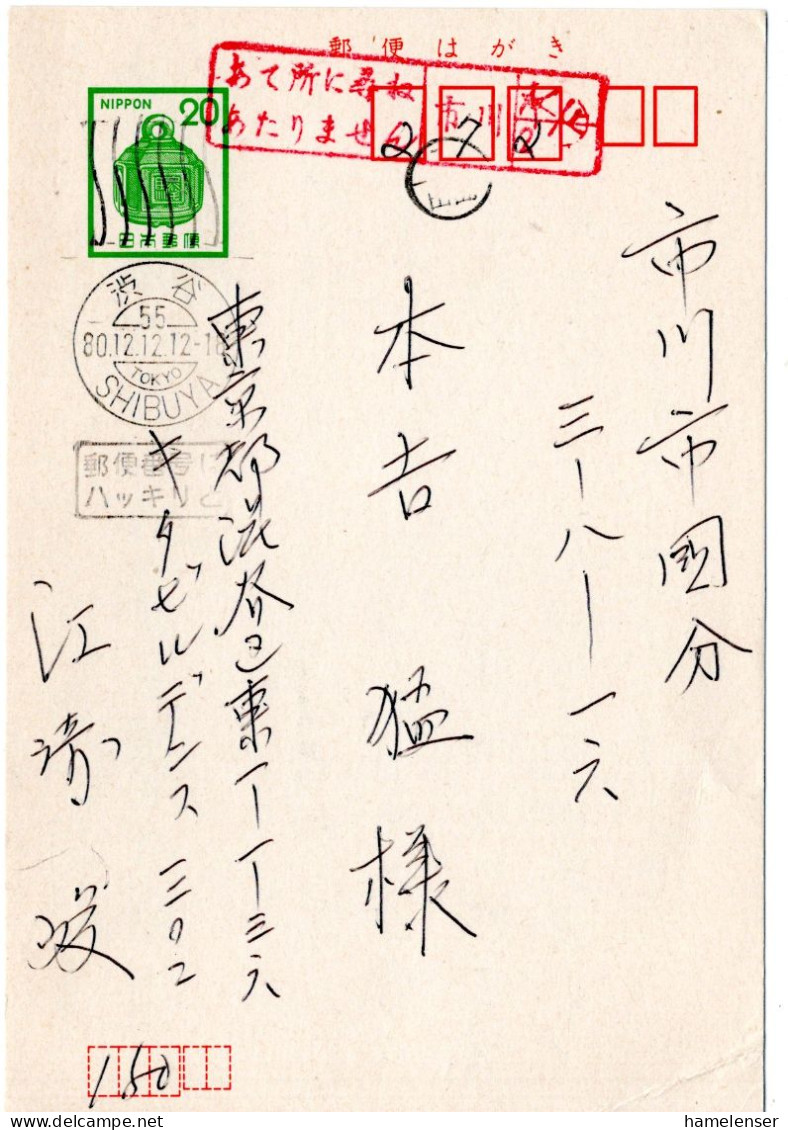 郵便はがき
NIPPON 20
日本郵便
あて所に尋ね
あたりません
市川
272
渋谷
55
80.12.12.12-18
TOKYO
SHIBUYA
郵便番号は
ハッキリと
市川市國分
三ー八ー一六
本吉 猛様
東京都渋谷区東一ー一ー三六
キタゼルデンス 三〇二
江
150
hamelenser.com